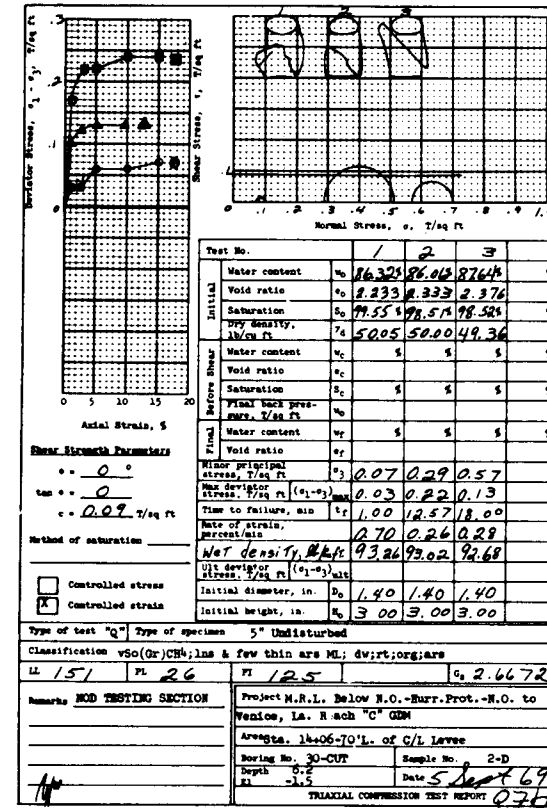 1 2 3
.3
.2
.1
0
Deviator Stress, σ1 - σ3, T/sq ft
Shear Stress, τ, T/sq ft
.1
0 .1 .2 .3 .4 .5 .6 .7 .8 .9 1.
Normal Stress, σ, T/sq ft
0 5 10 15 20
Axial Strain, %
Shear Strength Parameters
φ = 0 °
tan φ = 0
c = 0.09 T/sq ft
Method of saturation
Controlled stress
X Controlled strain
Test No. 1 2 3
Initial
Water content w0 86.32% 86.06% 87.64%
Void ratio e0 2.233 2.333 2.376
Saturation S0 99.55 % 98.51% 98.52%
Dry density, lb/cu ft γd 50.05 50.00 49.36
Before Shear
Water content wc % % %
Void ratio ec
Saturation Sc % % %
Final back pressure, T/sq ft u0
Final
Water content wf % % %
Void ratio ef
Minor principal stress, T/sq ft σ3 0.07 0.29 0.57
Max deviator stress, T/sq ft (σ1-σ3)max 0.03 0.22 0.13
Time to failure, min tf 1.00 12.57 18.00
Rate of strain, percent/min 0.70 0.26 0.28
Wet density, 93.26 93.02 92.68
Ult deviator stress, T/sq ft (σ1-σ3)ult
Initial diameter, in. D0 1.40 1.40 1.40
Initial height, in. H0 3 00 3.00 3.00
Type of test "Q" Type of specimen 5" Undisturbed
Classification vSo(Gr)CH4;lns & few thin ars ML; dw;rt;org;ars
LL 151 PL 26 PI 125 Gs 2.6672
Remarks NOD TESTING SECTION
Project M.R.L. Below N.O.-Hurr.Prot.-N.O. to
Venice, La. R ach "C" GDM
Area Sta. 14+06-70'L. of C/L Levee
Boring No. 30-CUT Sample No. 2-D
Depth 6.2
El -1.5 Date 5 Sept 69
TRIAXIAL COMPRESSION TEST REPORT